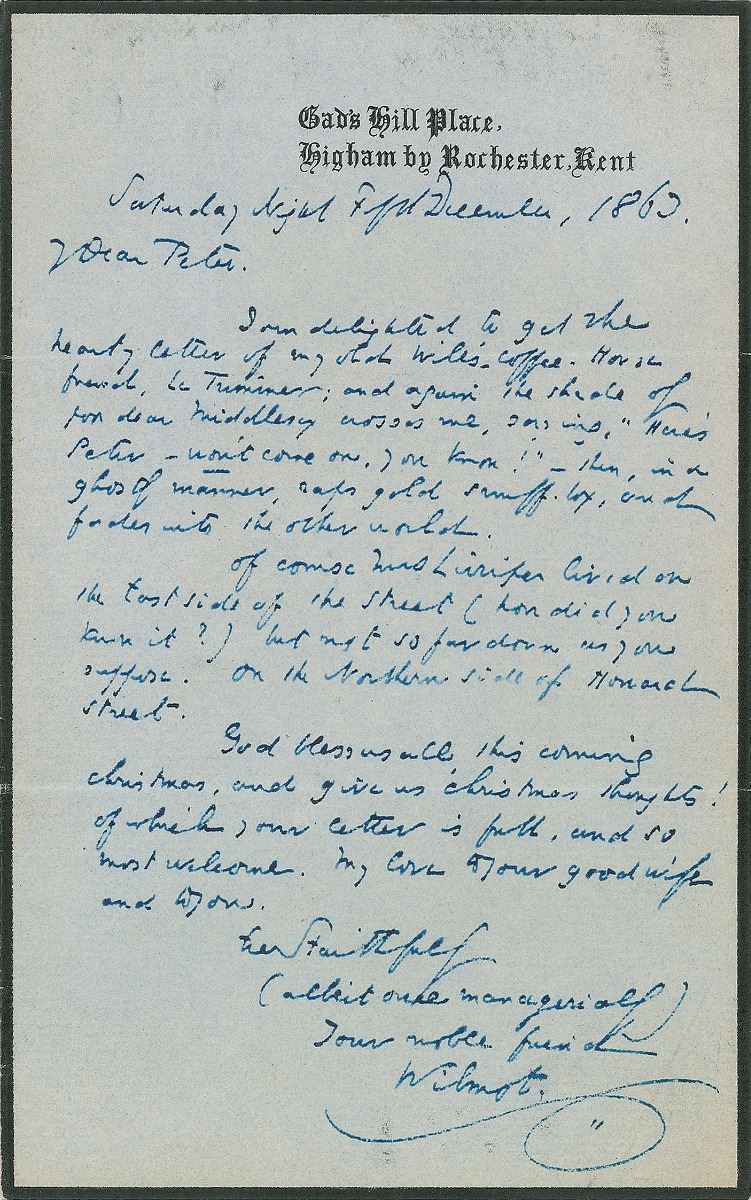 Gad's Hill Place,
Higham by Rochester, Kent
Saturday Night Fifth December, 1863.
My Dear Peter.
I am delighted to get the
hearty letter of my old Will's-coffee-House
friend, Le Trimmer; and again the shade of
poor dear Middlesex crosses me, saying, "Here's
Peter – won't come on, you know!" – then, in a
ghostly manner, raps gold snuff-box, and
fades into the other world.
Of course Mrs Lirriper lived on
the East side of the street (how did you
know it?) but not so far down as you
suppose. On the Northern side of Howard
street.
God bless us all, this coming
christmas, and give us christmas thoughts!
of which your letter is full, and so
most welcome. My love to your good wife
and to you.
Ever Faithfully
(albeit once managerially)
Your noble friend
Wilmot.